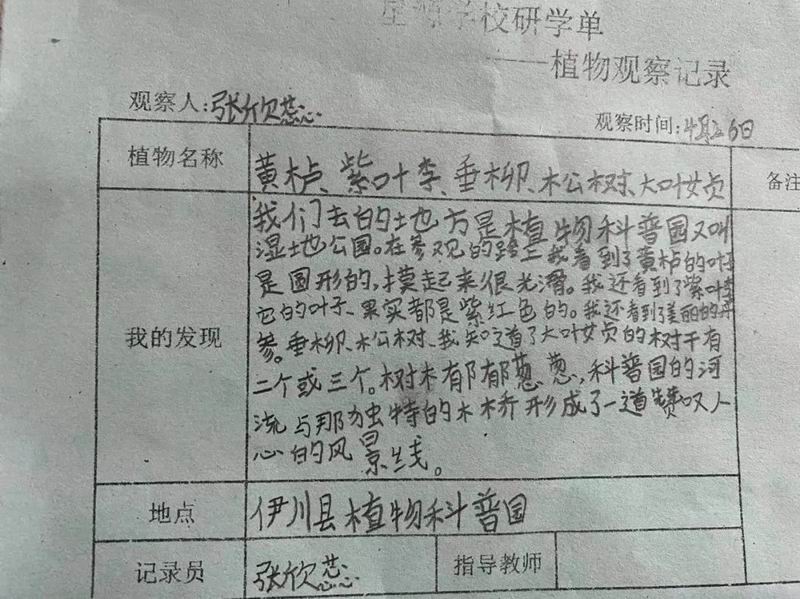 星源学校研学单
——植物观察记录
观察人:张欣蕊
观察时间:4月26日
植物名称 黄栌、紫叶李、垂柳、松树、大叶女贞 备注
我的发现
我们去的地方是植物科普园又叫
湿地公园。在参观的路上我看到了黄栌的叶子
是圆形的,摸起来很光滑。我还看到了紫叶李
它的叶子、果实都是紫红色的。我还看到了美丽的丹
参。垂柳、松树、我知道了大叶女贞的树干有
二个或三个。树木郁郁葱葱,科普园的河
流与那独特的木桥形成了一道赞叹人
心的风景线。
地点 伊川县植物科普园
记录员 张欣蕊 指导教师